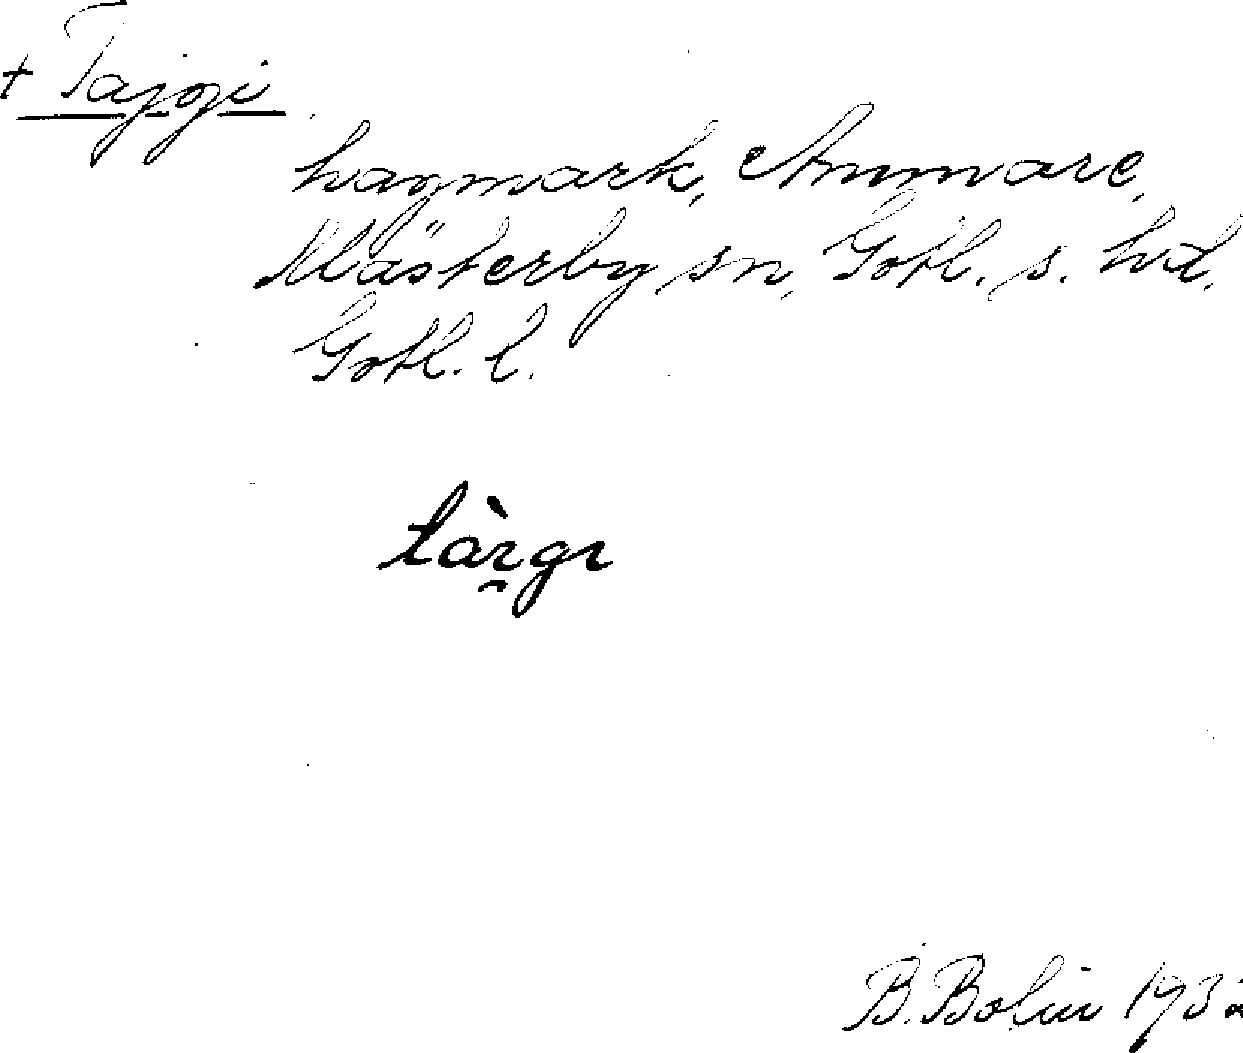 + Tajgi
hagmark, Ammare,
Mästerby sn, Gotl. s. hd.
Gotl. l.
B. Bolin 1932